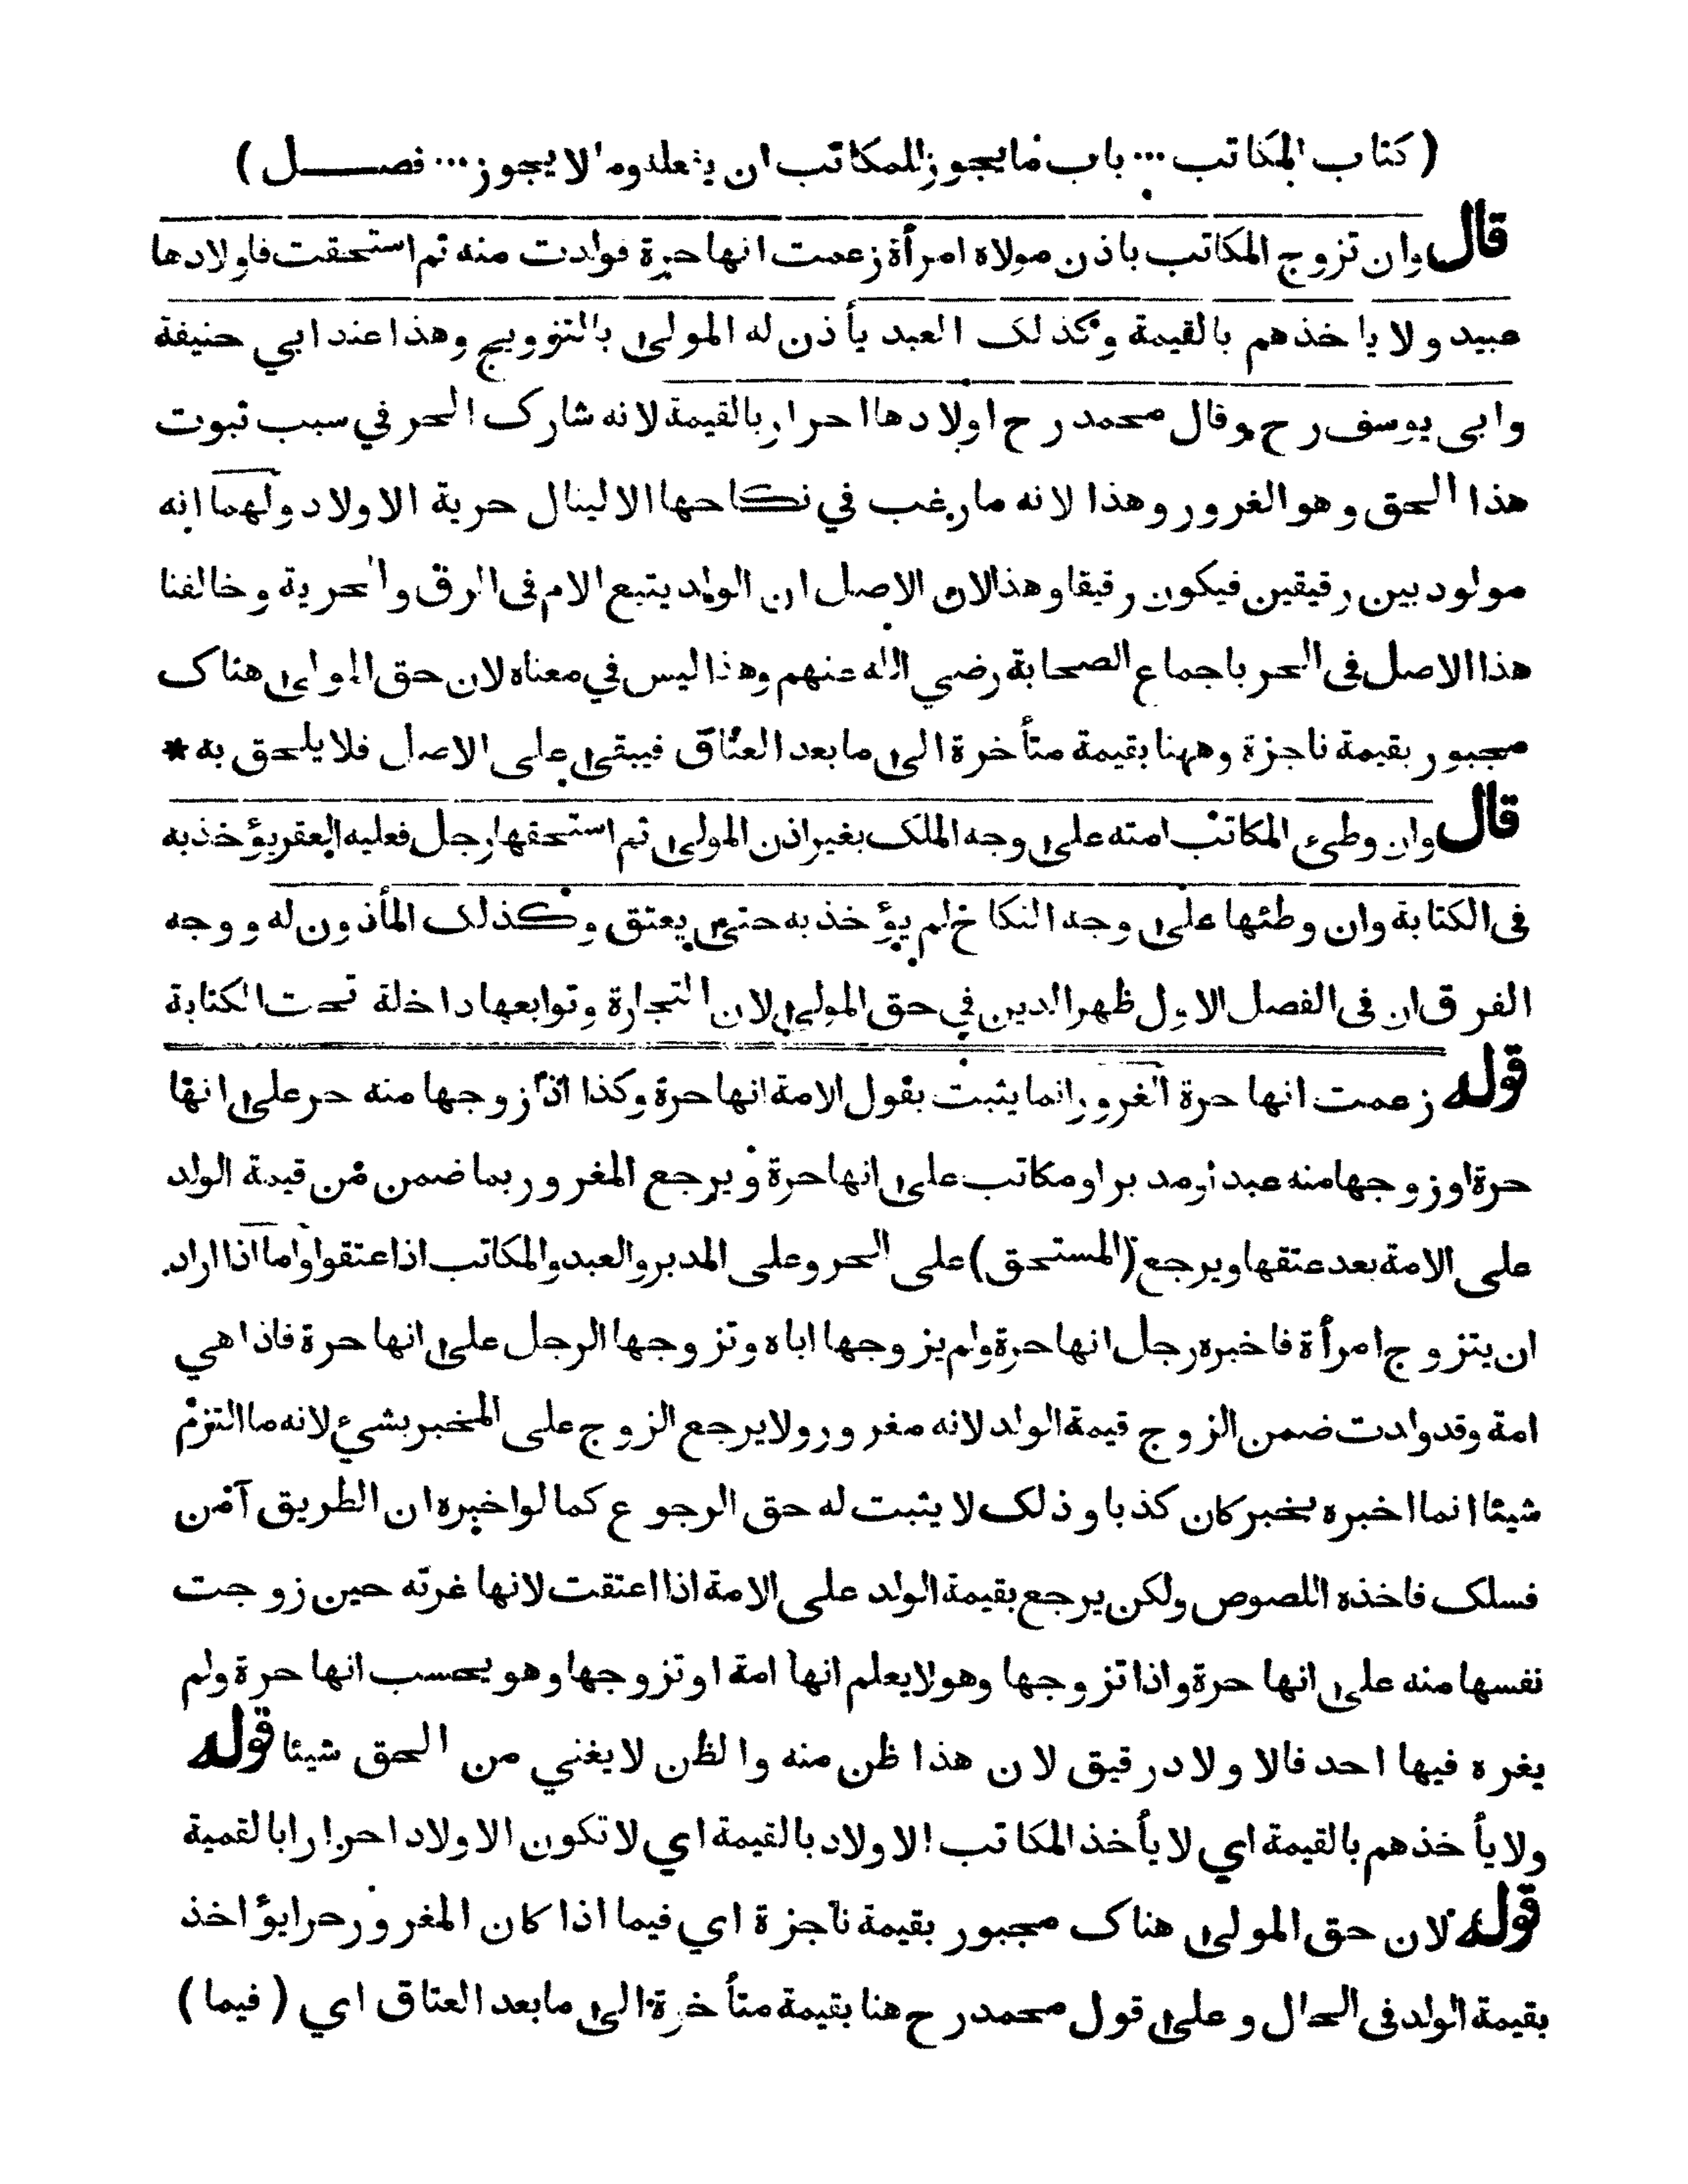 ( كتاب المكاتب ... باب ما يجوز للمكاتب ان يفعله وما لا يجوز ... فصل )
قال وان تزوج المكاتب باذن مولاه امرأة زعمت انها حرة فولدت منه ثم استحقت فاولادها
عبيد ولا ياخذهم بالقيمة وكذلك العبد يأذن له المولى بالتزويج وهذا عند ابي حنيفة
وابي يوسف رح وقال محمد رح اولادها احرار بالقيمة لانه شارك الحر في سبب ثبوت
هذا الحق وهو الغرور وهذا لانه ما رغب في نكاحها الا لينال حرية الاولاد ولهما انه
مولود بين رقيقين فيكون رقيقا وهذا لان الاصل ان الولد يتبع الام في الرق والحرية وخالفنا
هذا الاصل في الحر باجماع الصحابة رضي الله عنهم وهذا ليس في معناه لان حق المولى هناك
مجبور بقيمة ناجزة وههنا بقيمة متأخرة الى ما بعد العتاق فيبقى على الاصل فلا يلحق به *
قال وان وطئ المكاتب امته على وجه الملك بغير اذن المولى ثم استحقها رجل فعليه العقر يؤخذ به
في الكتابة وان وطئها على وجه النكاح لم يؤخذ به حتى يعتق وكذلك المأذون له ووجه
الفرق ان في الفصل الاول ظهر الدين في حق المولى لان التجارة وتوابعها داخلة تحت الكتابة
قوله زعمت انها حرة الغرور انما يثبت بقول الامة انها حرة وكذا اذا زوجها منه حر على انها
حرة او زوجها منه عبد او مدبر او مكاتب على انها حرة ويرجع المغرور بما ضمن من قيمة الولد
على الامة بعد عتقها ويرجع (المستحق) على الحر وعلى المدبر والعبد والمكاتب اذا عتقوا واما اذا اراد
ان يتزوج امرأة فاخبره رجل انها حرة ولم يزوجها اباه وتزوجها الرجل على انها حرة فاذا هي
امة وقد ولدت ضمن الزوج قيمة الولد لانه مغرور ولا يرجع الزوج على المخبر بشيء لانه ما التزم
شيئا انما اخبره بخبر كان كذبا وذلك لا يثبت له حق الرجوع كما لو اخبره ان الطريق آمن
فسلك فاخذه اللصوص ولكن يرجع بقيمة الولد على الامة اذا اعتقت لانها غرته حين زوجت
نفسها منه على انها حرة واذا تزوجها وهو لا يعلم انها امة او تزوجها وهو يحسب انها حرة ولم
يغره فيها احد فالاولاد رقيق لان هذا ظن منه والظن لا يغني من الحق شيئا قوله
ولا يأخذهم بالقيمة اي لا يأخذ المكاتب الاولاد بالقيمة اي لا تكون الاولاد احرارا بالقمية
قوله لان حق المولى هناك مجبور بقيمة ناجزة اي فيما اذا كان المغرور حرا يؤاخذ
بقيمة الولد في الحال وعلى قول محمد رح هنا بقيمة متأخرة الى ما بعد العتاق اي ( فيما )